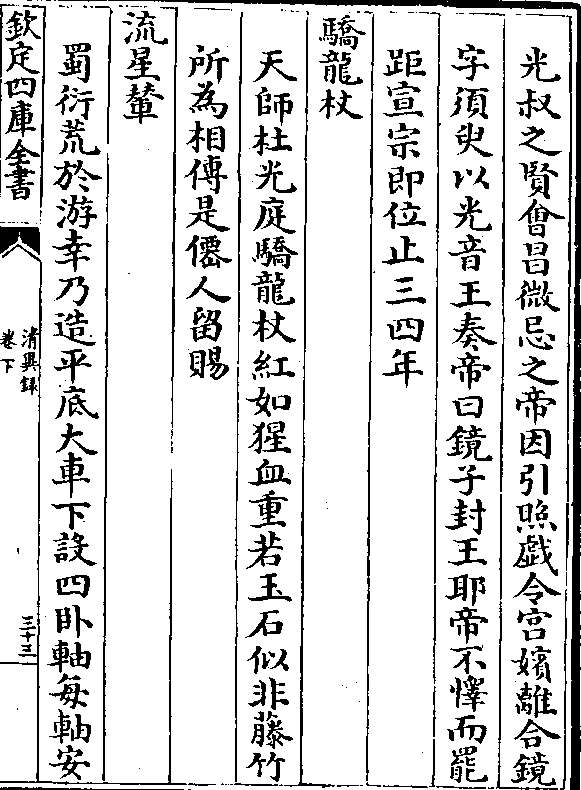 光叔之賢會昌微忌之帝因引照戯令宫嬪離合鏡
字須臾以光音王奏帝曰鏡子封王耶帝不懌而罷
距宣宗即位止三四年
驕龍杖
天師杜光庭驕龍杖紅如猩血重若玉石似非藤竹
所為相傳是僊人留賜
流星輦
蜀衍荒於游幸乃造平底大車下設四卧軸每軸安
欽定四庫全書
清異録
卷下
三十三